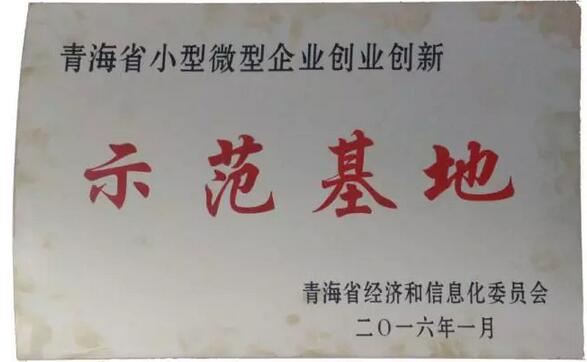 青海省小型微型企业创业创新
示范基地
青海省经济和信息化委员会
二〇一六年一月